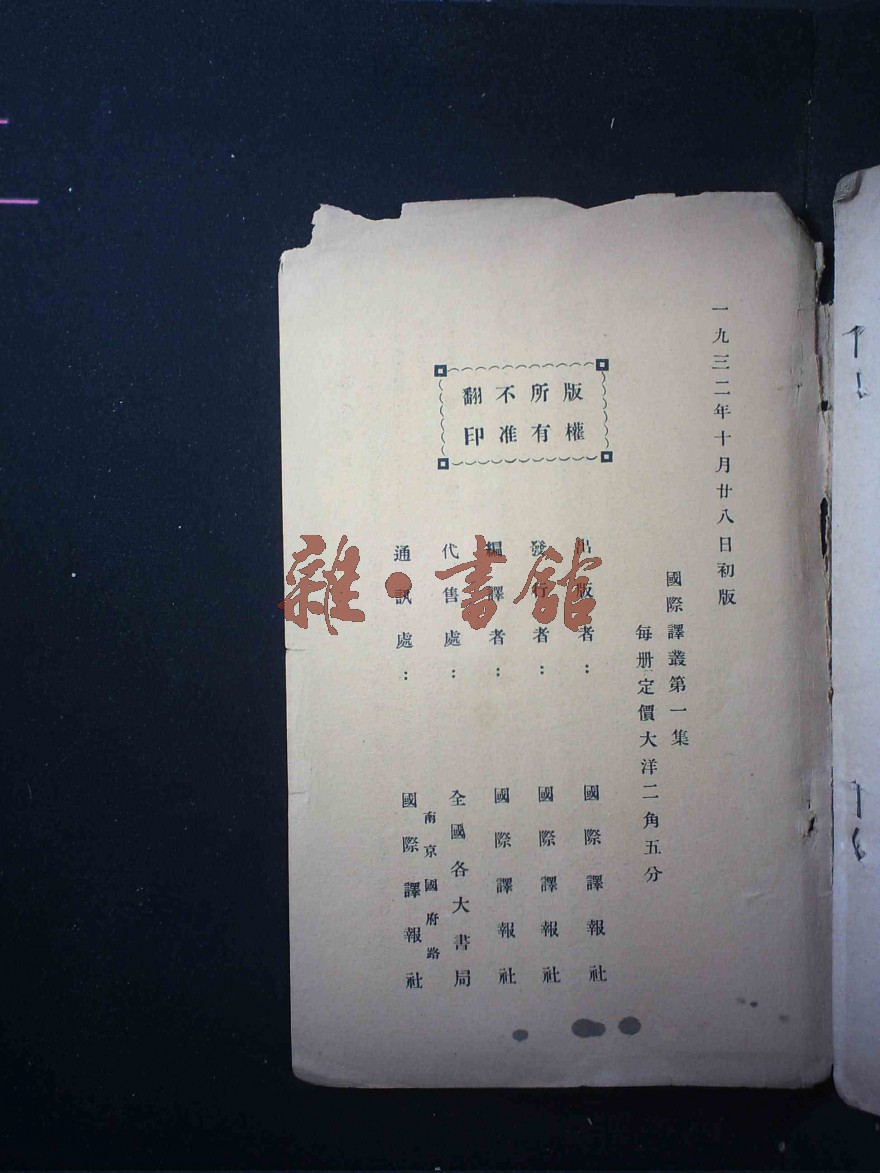 一九三二年十月廿八日初版
國際譯叢第一集
每册定價大洋二角五分
版權
所有
不准
翻印
出版者：國際譯報社
發行者：國際譯報社
編譯者：國際譯報社
代售處：全國各大書局
通訊處：南京國府路
國際譯報社
雜·書館